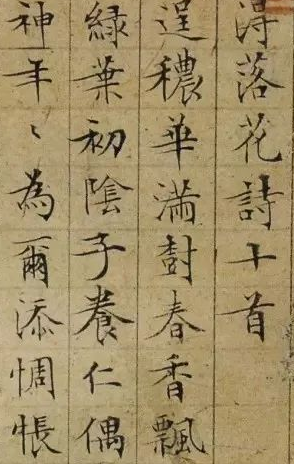 得落花詩十首
逞穠華滿樹春香飄
綠葉初陰子養仁偶
神年〻為爾添惆悵